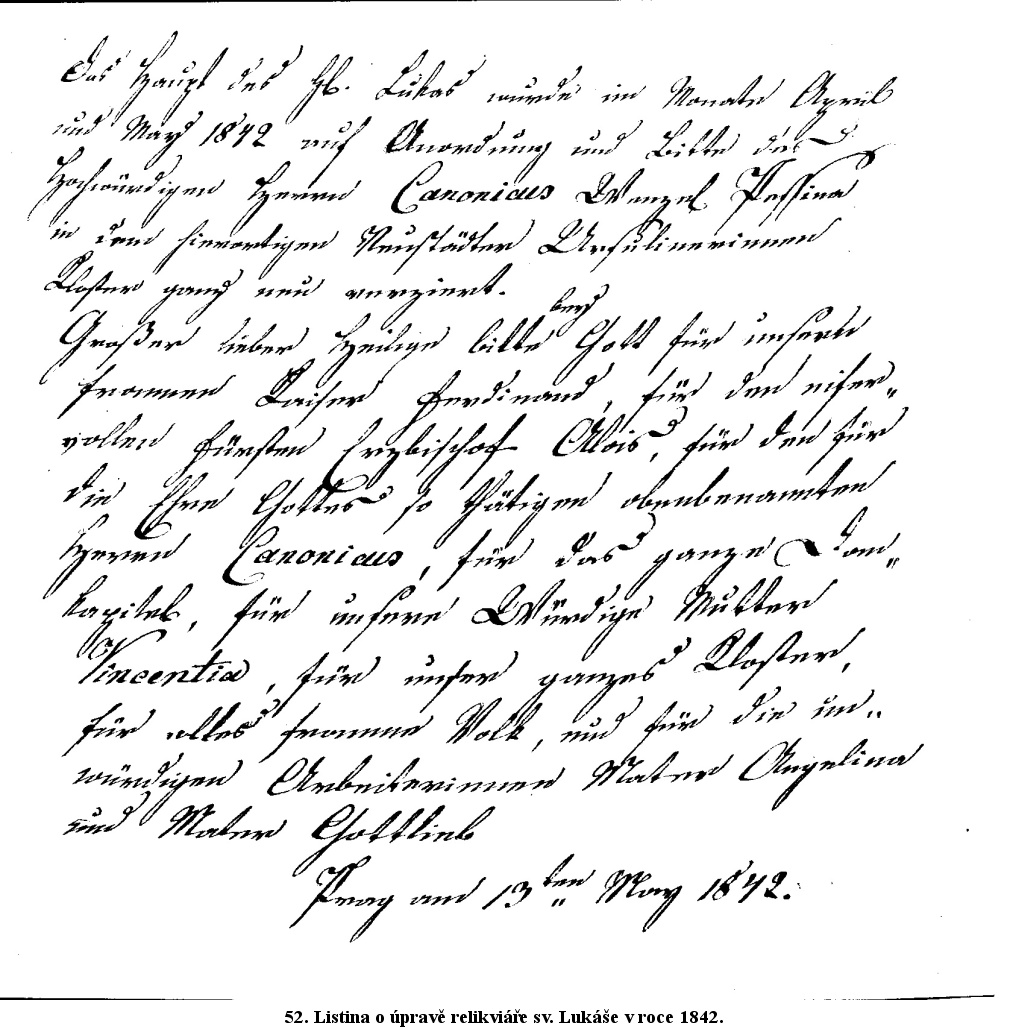 Das Haupt des Hl. Lukas wurde im Monate April
und May 1842 auf Anordnung und Bitte des
Hochwürdigen Herrn Canonicus Wenzel Pessina
in dem hierortigen Neustädter Ursulinerinnen
Kloster ganz neu verziert.
Großer lieber Heilige bitte bey Gott für unsern
frommen Kaiser Ferdinand, für den eifer„
vollen Fürsten Erzbischof Alois, für den für
die Ehre Gottes so thätigen obenbenannten
Herrn Canonicus, für das ganze Dom„
kapitel, für unsere Würdige Mutter
Vincentia, für unser ganzes Kloster,
für alles fromme Volk, und für die un„
würdigen Arbeiterinnen Mater Angelina
und Mater Gottlieb
Prag am 13ten May 1842.
52. Listina o úpravě relikviáře sv. Lukáše v roce 1842.